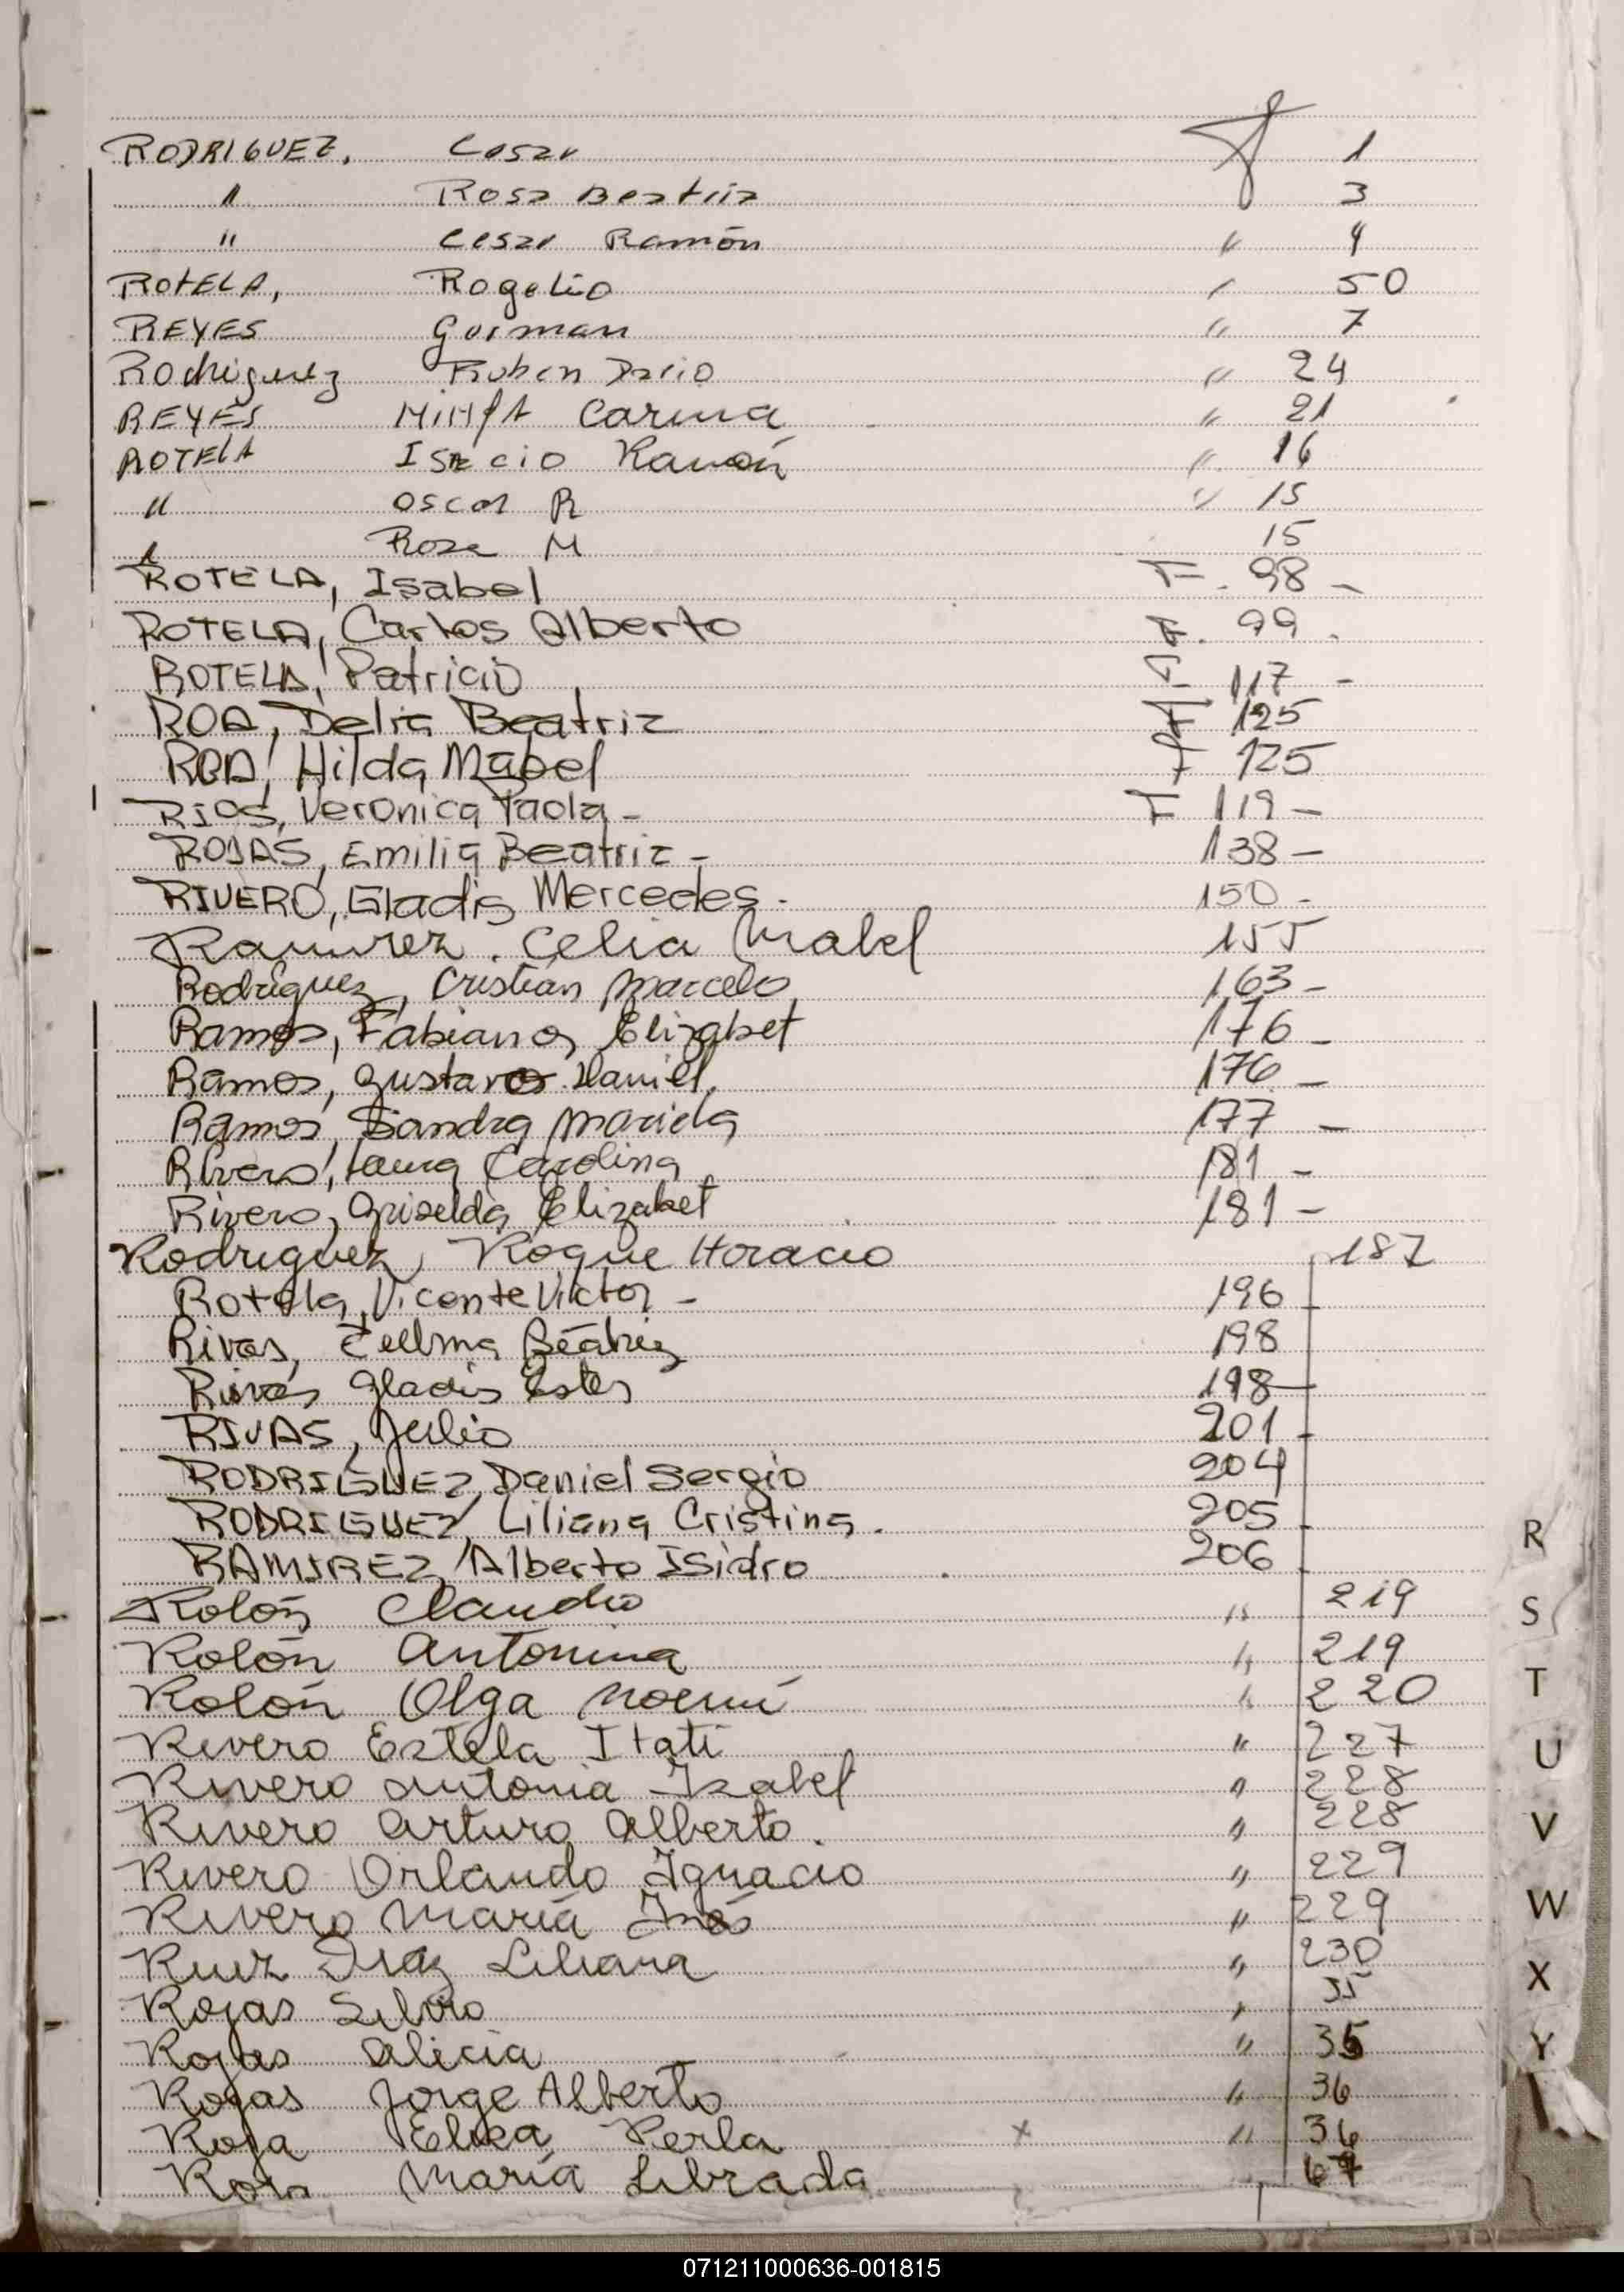 RODRIGUEZ, Cesar F 1
" Rosa Beatriz 3
" Cesar Ramón " 4
ROTELA, Rogelio " 50
REYES German " 7
Rodriguez Ruben Dario " 24
REYES Carina " 21
ROTELA Ramón " 16
" oscar R " 15
" Rosa M 15
ROTELA, Isabel F. 98 -
ROTELA, Carlos Alberto F. 99 -
ROTELA, Patricio F 117 -
ROA, Delia Beatriz F 125
ROA, Hilda Mabel F 125
RIOS, Veronica Paola - F 119 -
ROJAS, Emilia Beatriz - 138 -
RIVERO, Gladis Mercedes - 150 -
Ramirez. Celia Mabel 155
Rodriguez, Cristian Marcelo 163 -
Ramos, Fabiana Elizabet 176 -
Ramos, Gustavo Daniel. 176 -
Ramos, Sandra Mariela 177 -
Rivero, Laura Carolina 181 -
Rivero, Griselda Elizabet 181 -
Rodriguez, Roque Horacio 187
Rotela, Vicente Victor - 196 -
Rivas, Zullma Beatriz 198
Rivas Gladis Ester 198 -
RIVAS, Julio 201 -
RODRIGUEZ, Daniel Sergio 204
RODRIGUEZ, Liliana Cristina. 205 -
RAMIREZ, Alberto Isidro 206 -
Rolón Claudio " 219
Rolón Antonina " 219
Rolón Olga Noemí " 220
Rivero Estela Itati " 227
Rivero Antonia Isabel " 228
Rivero Arturo Alberto. " 228
Rivero Orlando Ignacio " 229
Rivero María Inés " 229
Ruiz Diaz Liliana " 230
Rojas Silvio " 35
Rojas Alicia " 35
Rojas Jorge Alberto " 36
Roja Elsa Perla x " 36
María Librada 67
R
S
T
U
V
W
X
Y
071211000636-001815